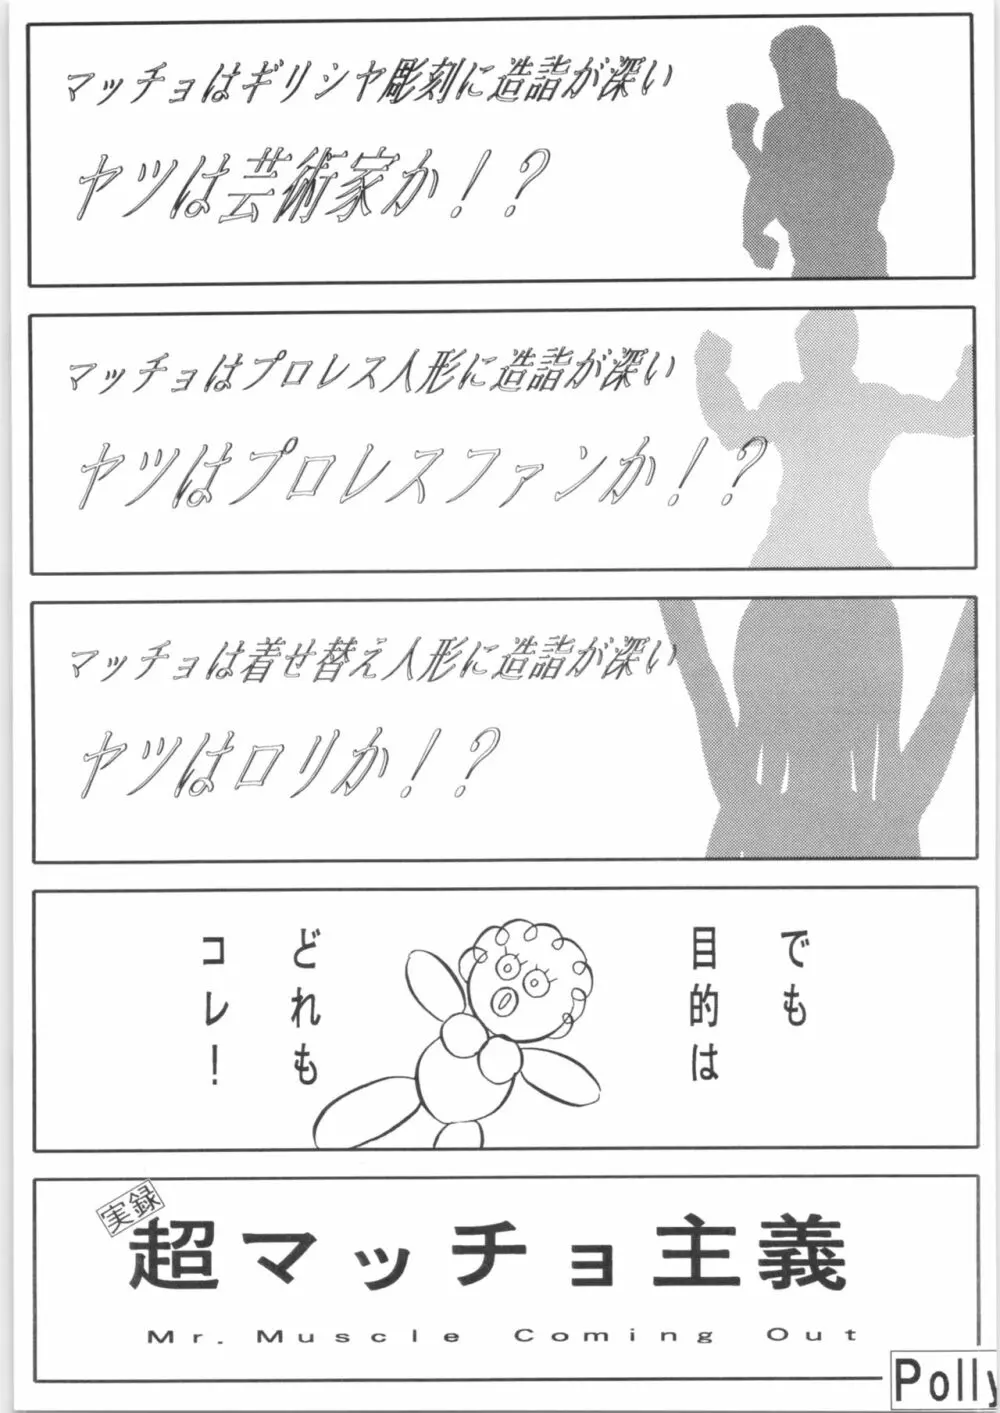 マッチョはギリシヤ彫刻に造詣が深い
ヤツは芸術家か！？
マッチョはプロレス人形に造詣が深い
ヤツはプロレスファンか！？
マッチョは着せ替え人形に造詣が深い
ヤツはロリか！？
でも
目的は
どれも
コレ！
実録
超マッチョ主義
Mr. Muscle Coming Out
Polly